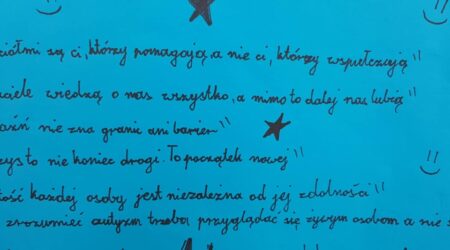 ziółmi są ci, którzy pomagają, a nie ci, którzy współczują"
ciele wiedzą o nas wszystko, a mimo to dalej nas lubią"
aźń nie zna granic ani barier"
zys to nie koniec drogi. To początek nowej"
tość każdej osoby jest niezależna od jej zdolności"
zrozumieć autyzm trzeba przyglądać się żywym osobom a nie